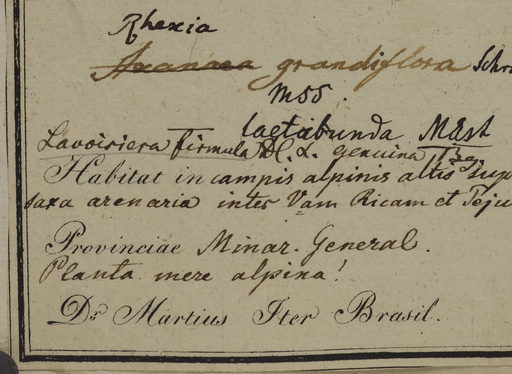 Rhexia
Axanaea grandiflora Schra
Mss.
laetabunda MEst
Lavoisiera firmula DC. α. genuina
Habitat in campis alpinis altis supo
saxa arenaria inter Vam Ricam et Teju
Provinciae Minar. General.
Planta mere alpina!
Dr Martius Iter Brasil.